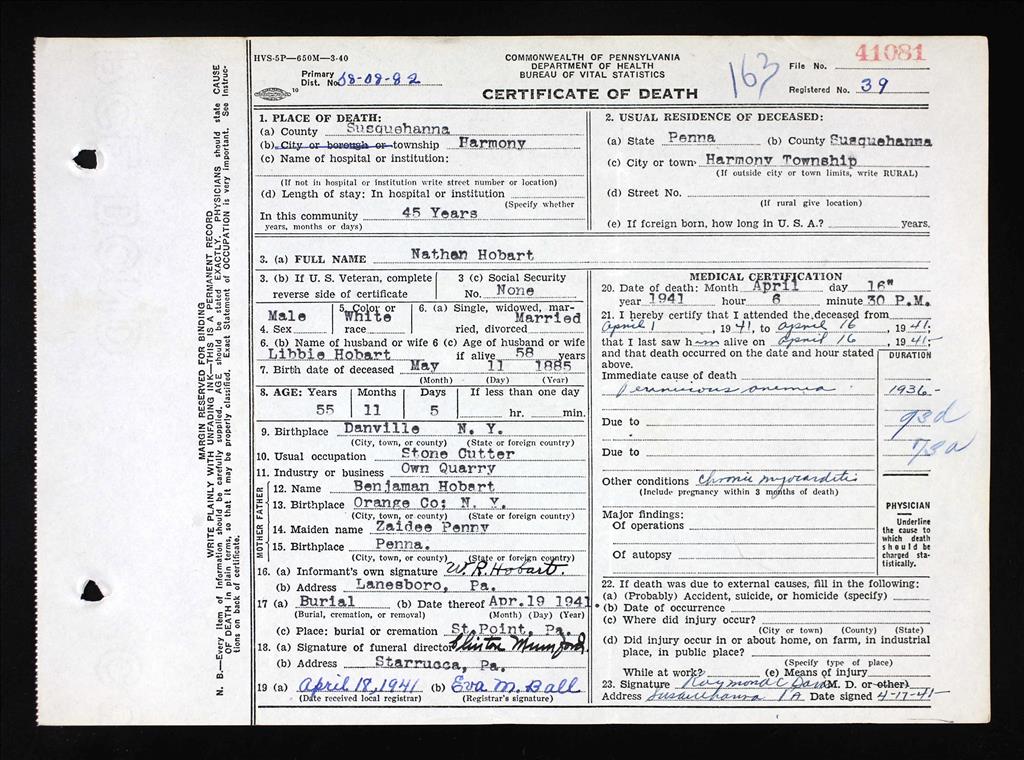 HVS-5P—650M—3-40
COMMONWEALTH OF PENNSYLVANIA
DEPARTMENT OF HEALTH
BUREAU OF VITAL STATISTICS
CERTIFICATE OF DEATH
Primary Dist. No. 58-08-82
163
File No. 41081
Registered No. 39
1. PLACE OF DEATH:
(a) County Susquehanna
(b) City or borough or township Harmony
(c) Name of hospital or institution:
(If not in hospital or institution write street number or location)
(d) Length of stay: In hospital or institution
(Specify whether
In this community 45 Years
years, months or days)
2. USUAL RESIDENCE OF DECEASED:
(a) State Penna (b) County Susquehanna
(c) City or town Harmony Township
(If outside city or town limits, write RURAL)
(d) Street No.
(If rural give location)
(e) If foreign born, how long in U. S. A.? years.
3. (a) FULL NAME Nathan Hobart
3. (b) If U. S. Veteran, complete reverse side of certificate
3 (c) Social Security No. None
4. Sex Male
5. Color or race White
6. (a) Single, widowed, married, divorced Married
6. (b) Name of husband or wife Libbie Hobart
6 (c) Age of husband or wife if alive 58 years
7. Birth date of deceased May 11 1885
(Month) (Day) (Year)
8. AGE: Years Months Days If less than one day
55 11 5 hr. min.
9. Birthplace Danville N. Y.
(City, town, or county) (State or foreign country)
10. Usual occupation Stone Cutter
11. Industry or business Own Quarry
FATHER
12. Name Benjaman Hobart
13. Birthplace Orange Co; N. Y.
(City, town, or county) (State or foreign country)
MOTHER
14. Maiden name Zaidee Penny
15. Birthplace Penna.
(City, town, or county) (State or foreign country)
16. (a) Informant's own signature W. R. Hobart.
(b) Address Lanesboro, Pa.
17 (a) Burial (b) Date thereof Apr. 19 1941.
(Burial, cremation, or removal) (Month) (Day) (Year)
(c) Place: burial or cremation St. Point, Pa.
18. (a) Signature of funeral director Clinton Mumford.
(b) Address Starrucca, Pa.
19 (a) April 18, 1941 (b) Eva M. Ball
(Date received local registrar) (Registrar's signature)
MEDICAL CERTIFICATION
20. Date of death: Month April day 16"
year 1941 hour 6 minute 30 P.M.
21. I hereby certify that I attended the deceased from
April 1, 1941, to April 16, 1941.
that I last saw him alive on April 16, 1941-
and that death occurred on the date and hour stated above.
DURATION
Immediate cause of death
Pernicious anemia 1936-
Due to 93d
Due to 73a
Other conditions Chronic myocarditis
(Include pregnancy within 3 months of death)
Major findings:
Of operations
Of autopsy
PHYSICIAN
Underline the cause to which death should be charged statistically.
22. If death was due to external causes, fill in the following:
(a) (Probably) Accident, suicide, or homicide (specify)
(b) Date of occurrence
(c) Where did injury occur?
(City or town) (County) (State)
(d) Did injury occur in or about home, on farm, in industrial place, in public place?
(Specify type of place)
While at work? (e) Means of injury
23. Signature Raymond C Davis (M. D. or other)
Address Susquehanna Pa Date signed 4-17-41-
MARGIN RESERVED FOR BINDING
WRITE PLAINLY WITH UNFADING INK—THIS IS A PERMANENT RECORD
N. B.—Every item of information should be carefully supplied. AGE should be stated EXACTLY. PHYSICIANS should state CAUSE
OF DEATH in plain terms, so that it may be properly classified. Exact Statement of OCCUPATION is very important. See Instruc-
tions on back of certificate.